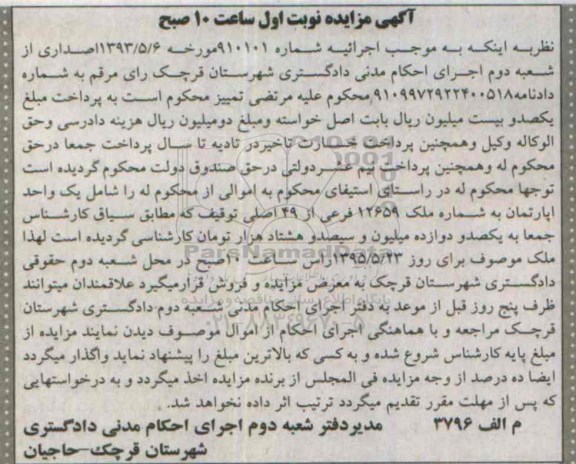 آگهی مزایده نوبت اول ساعت ۱۰ صبح
نظربه اینکه به موجب اجرائیه شماره ۹۱۰۱۰۱مورخه ۱۳۹۳/۵/۶صداری از
شعبه دوم اجرای احکام مدنی دادگستری شهرستان قرچک رای مرقم به شماره
دادنامه۹۱۰۹۹۷۲۹۲۲۴۰۰۵۱۸محکوم علیه مرتضی تمییز محکوم است به پرداخت مبلغ
یکصدو بیست میلیون ریال بابت اصل خواسته ومبلغ دومیلیون ریال هزینه دادرسی وحق
الوکاله وکیل وهمچنین پرداخت خسارت تاخیردر تادیه تا سال پرداخت جمعا درحق
محکوم له وهمچنین پرداخت نیم عشردولتی درحق صندوق دولت محکوم گردیده است
توجها محکوم له در راستای استیفای محکوم به اموالی از محکوم له را شامل یک واحد
اپارتمان به شماره ملک ۱۲۶۵۹ فرعی از ۴۹ اصلی توقیف که مطابق سیاق کارشناس
جمعا به یکصدو دوازده میلیون و سیصدو هشتاد هزار تومان کارشناسی گردیده است لهذا
ملک موصوف برای روز ۱۳۹۵/۵/۲۳راس ساعت ۱۰ صبح در محل شعبه دوم حقوقی
دادگستری شهرستان قرچک به معرض مزایده و فروش قرارمیگیرد علاقمندان میتوانند
ظرف پنج روز قبل از موعد به دفتر اجرای احکام مدنی شعبه دوم دادگستری شهرستان
قرچک مراجعه و با هماهنگی اجرای احکام از اموال موصوف دیدن نمایند مزایده از
مبلغ پایه کارشناس شروع شده و به کسی که بالاترین مبلغ را پیشنهاد نماید واگذار میگردد
ایضا ده درصد از وجه مزایده فی المجلس از برنده مزایده اخذ میگردد و به درخواستهایی
که پس از مهلت مقرر تقدیم میگردد ترتیب اثر داده نخواهد شد .
م الف ۳۷۹۶ مدیردفتر شعبه دوم اجرای احکام مدنی دادگستری
شهرستان قرچک–حاجیان
ParsNamadData